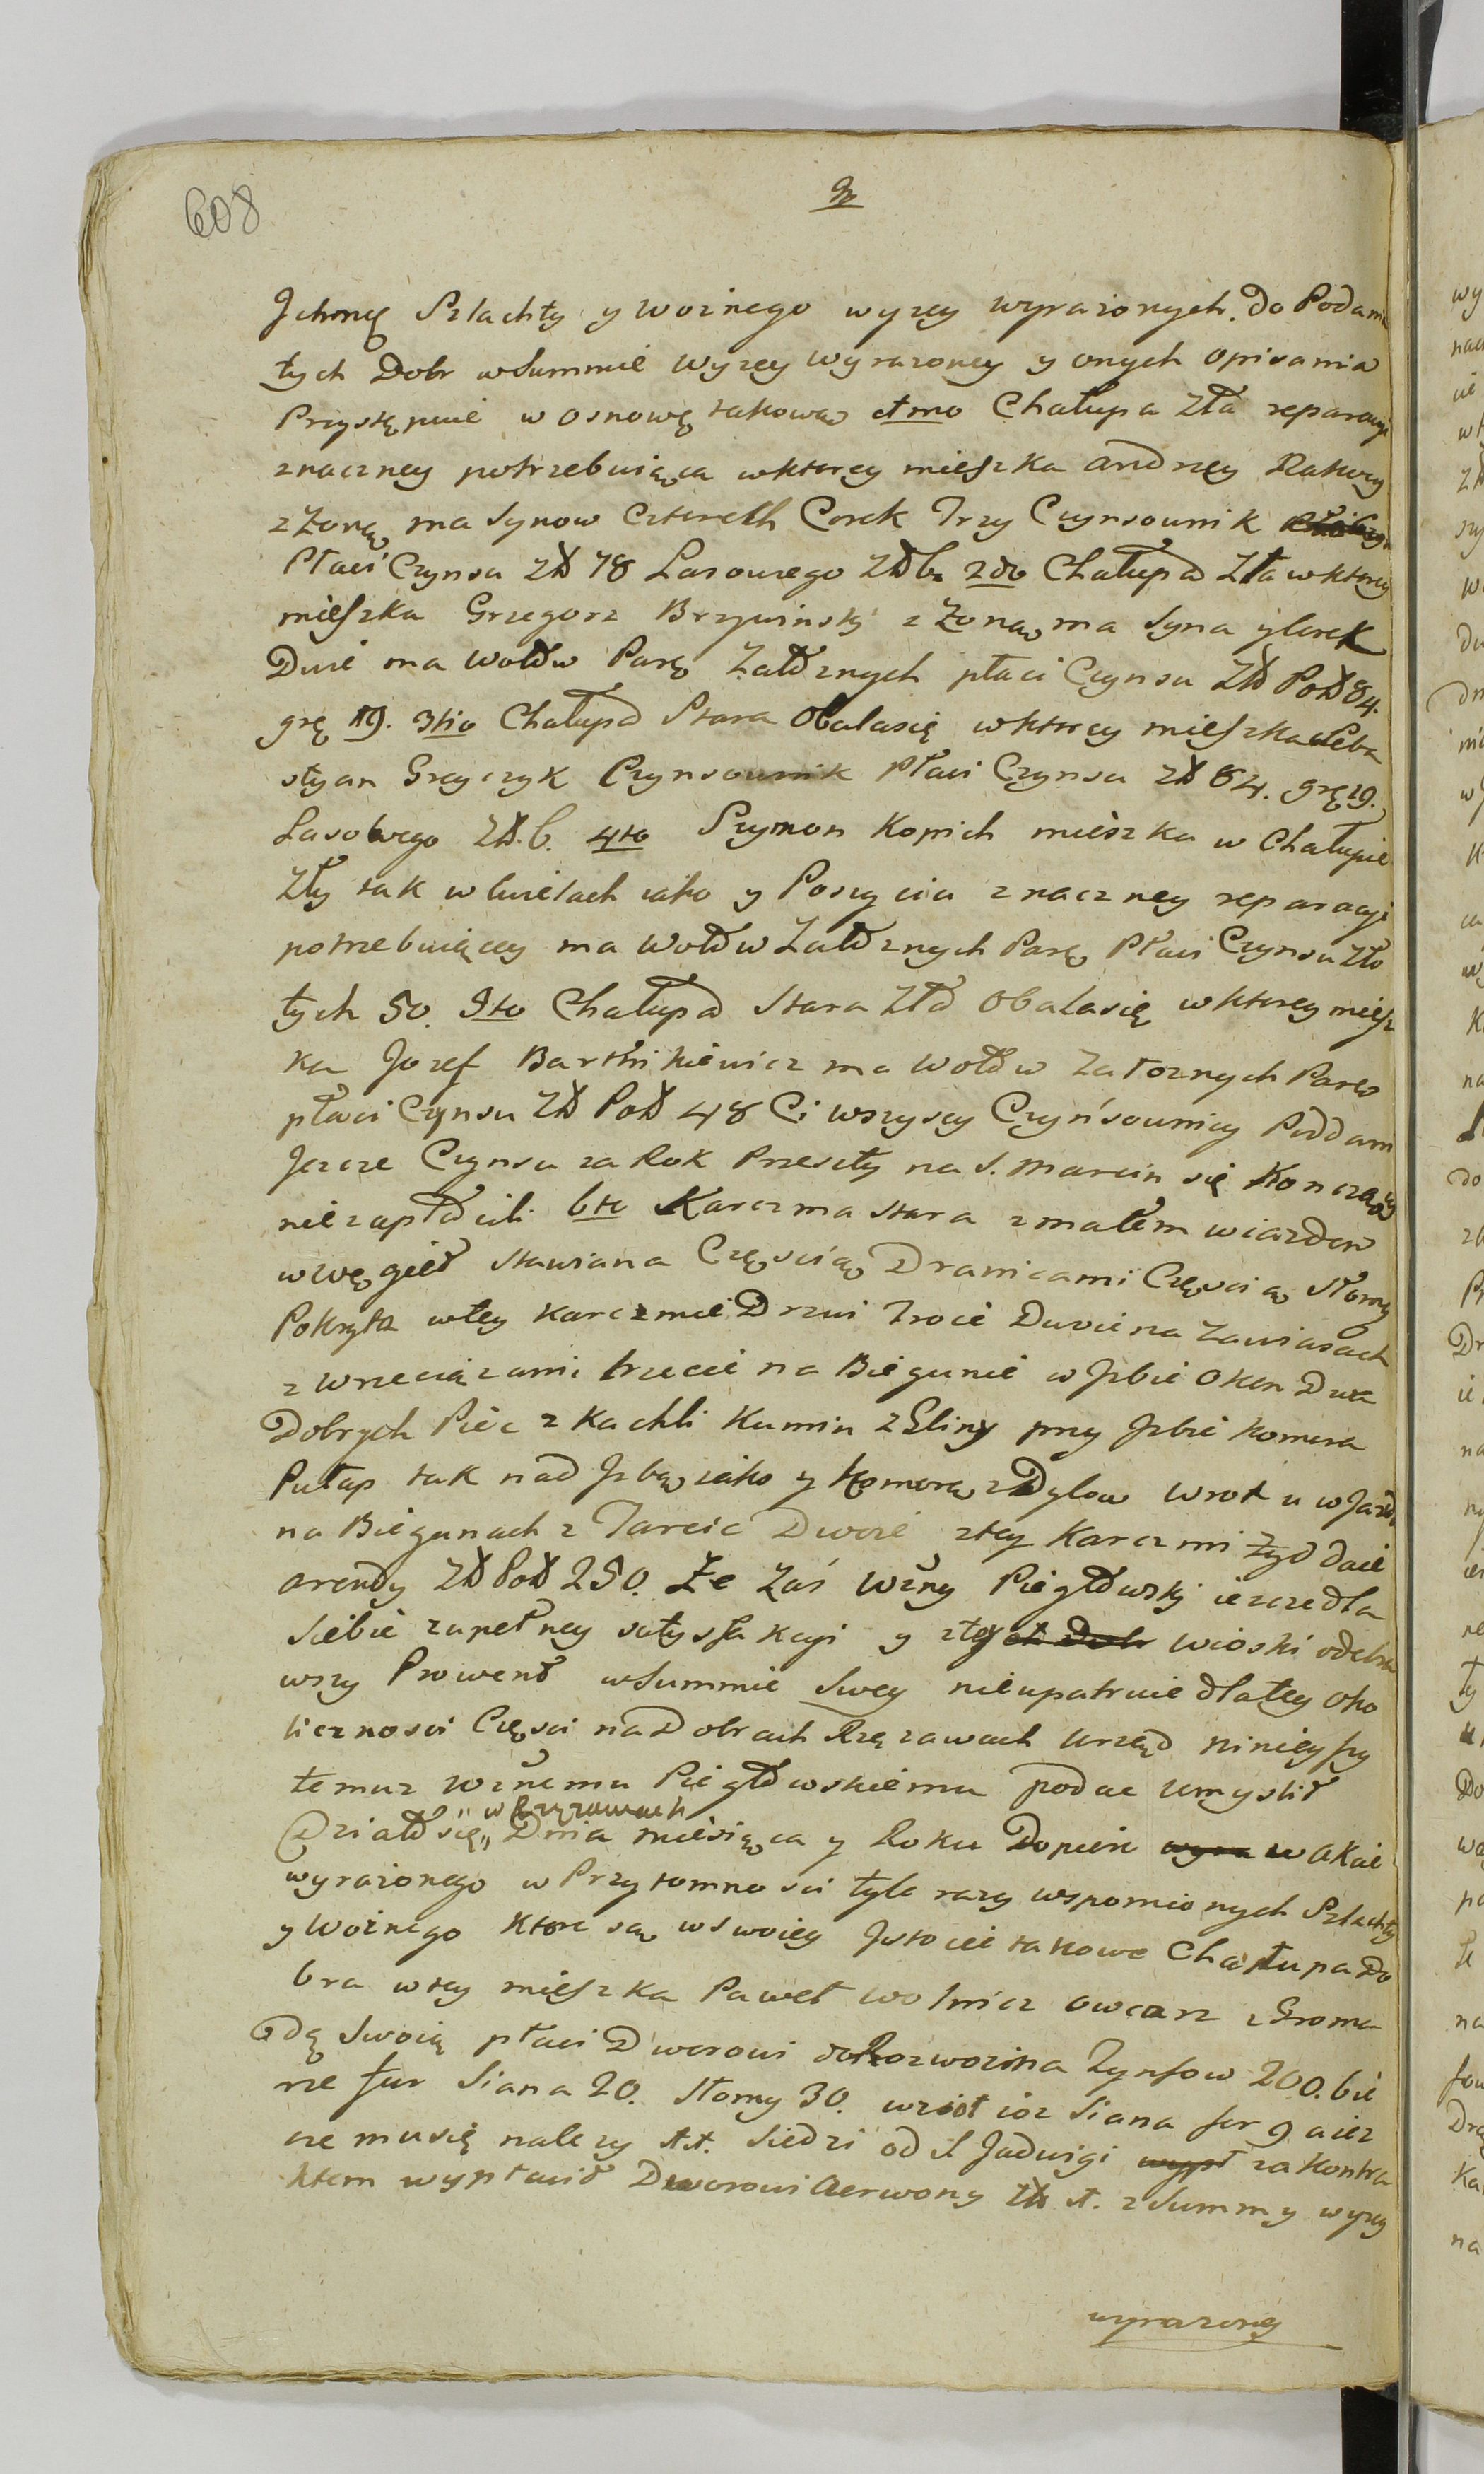 608
Jchmę Szlachty y woznego wyzey wyrazonych. do Podam
tych Dobr wsummie wyzey wyrazoney y onych opisania
Przystępuie w osnowę takową 1mo Chałupa Zła reparacyi
znaczney potrzebuiąca wktorey mieszka Andrzey Rakoczy
z Zoną ma Synow Czterech Corek Trzy Czynsownik
Płaci Czynsu Zł 78 Lasowego Zł 6. 2do Chałupa Zła wktorey
mieszka Grzegorz Brzywinsky z Zoną ma Syna y Corek
Dwie ma wołow Parę Załoznych płaci Czynsu Zł Pol 84.
grę 19. 3tio Chałupa Stara Obalasię wktorey mieszka Seba
styan Grzyczyk Czynsownik Płaci Czynsu Zł 84. grę 19.
Lasowego Zł. 6. 4to Szymon Kopich mieszka w Chałupie
Zły tak w bwielach iako y Poszycia znaczney reparacyi
potrzebuiącey ma wołow Załoznych Parę Płaci Czynsu Zło
tych 50. 5to Chałupa Stara Zła Obalasię wktorey miesz
ka Jozef Barthikiewicz ma wołow Załoznych Parę
płaci Czynsu Zł Pol 48 Ci wszyscy Czyńsownicy Poddani
Jezcze Czynsu za Rok Przeszły na S. Marcin się Konczący
niezapłacili 6to Karczma stara zmałem wiazdem
wwęgieł stawiana Częscią Dranicami Częscią Słomą
Pokryta wtey karczmie Drzwi Troie Dwie na Zawiasach
z wrzeciązami trzecie na Biegunie w Jzbie Oken Dwa
Dobrych Piec z Kachli Kumin z Gliny przy Jzbie Komora
Pułap tak nad Jzbą iako y Komorą z Dylow Wrot u wJazdu
na Biegunach z Tarcic Dwoie ztey Karczmi Zyd daie
arendy Zł Pol 250. Ze Zaś Wżny Piegłowsky ieszcze dla
Siebie zupełney satysfakcyi y ztey ch Dobr wioski odebra
wszy Prowent wsummie Swey nieupatruie dlatey oko
licznosci Częsci na Dobrach Rzęzawach Urząd ninieyszy
temuz Wżnemu Piegłowskiemu podac Umyslił
Działosię " w Rzęzawach
Dnia miesiąca y Roku Dopiero wyra w akcie
wyrazonego w Przytomnosci tyle razy wspomnionych Szlachty
y Woznego które są wswoiey Jstocie takowe Chałupa Do
bra wtey mieszka Paweł Wolnicz Owcarz z Groma
dę Swoią płaci Dworowi do Rozwozina Tynfow 200. bie
rze fur Siana 20. Słomy 30. wzioł ioz Siana fur 9 aiez
cze musię nalezy 11. Siedzi od S Jadwigi wypł za kontra
ktem wypłacił Dworowi Czerwony Zł 1. z Summy wyzey
wyrazoney